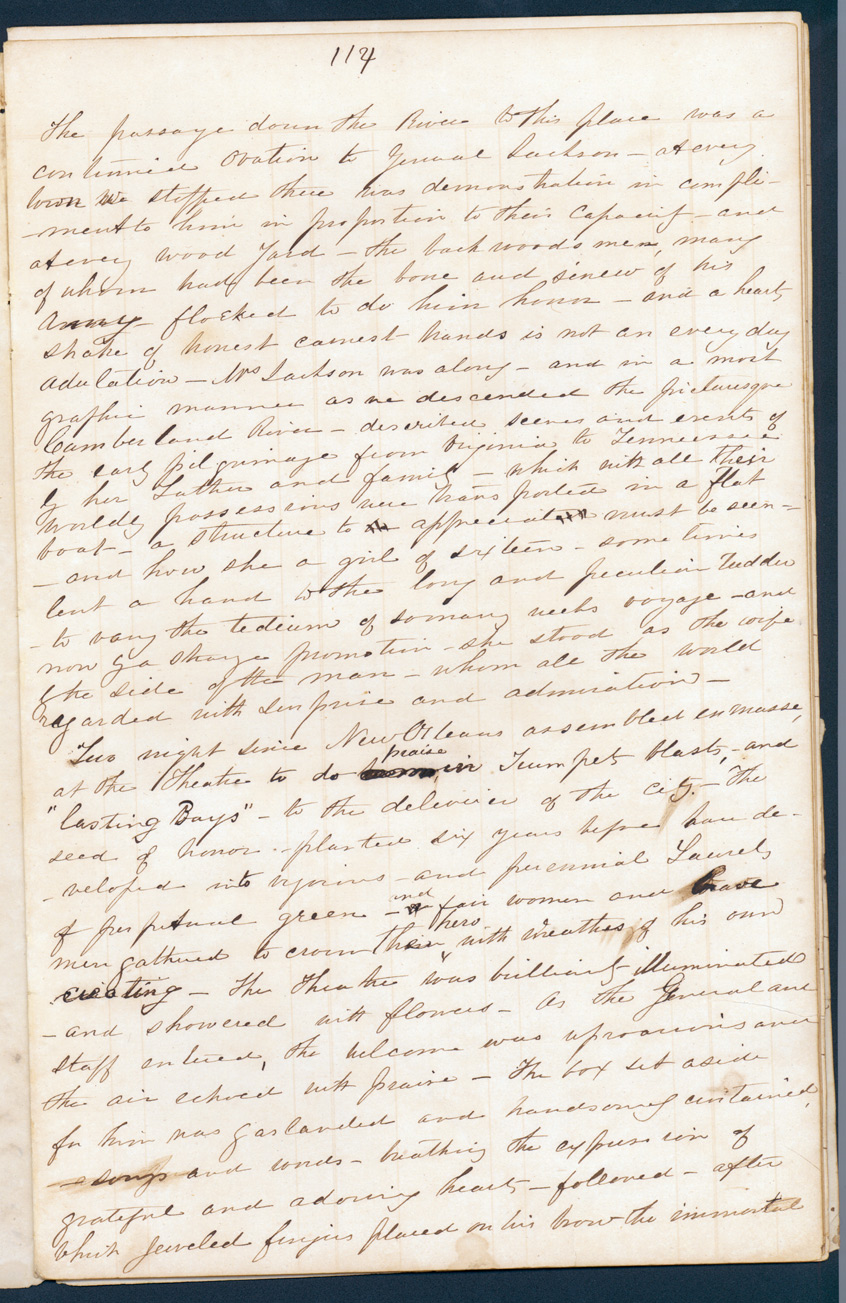 114
The passage down the River to this place was a
continued ovation to General Jackson - at every
town we stopped there was demonstration in compli-
-ment to him in proportion to their capacity - and
at every wood yard - the backwoods men, many
of whom had been the bone and sinew of his
army - flocked to do him honor - and a hearty
shake of honest earnest hands is not an every day
adulation - Mrs Jackson was along - and in a most
graphic manner as we descended the picturesque
Cumberland River - described scenes and events of
the early pilgrimage from Virginia to Tennessee
by her Father and family - which with all their
worldly possessions were transported in a flat
boat - a structure to appreciate must be seen -
- and how she a girl of sixteen - sometimes
lent a hand to the long and peculiar rudder
- to vary the tedium of so many weeks voyage - and
now strange promotion - she stood as the wife
by the side of the man - whom all the world
regarded with surprise and admiration -
Two night since New Orleans assembled enmasse,
at the Theatre to do praise in Trumpet blasts, - and
"lasting Bays" - to the deliverer of the city. - The
seed of honor - planted six years before have de-
-veloped into vigorous - and perennial Laurels
of perpetual green - and fair women and brave
men gathered to crown their hero with wreathes of his own
creating - The Theatre was brilliantly illuminated
- and showered with flowers - As the General and
staff entered, the welcome was uproarious and
the air echoed with praise - The box set aside
for him was garlanded and handsomely curtained,
- songs and words - breathing the expression of
grateful and adoring hearts - followed - after
which jeweled fingers placed on his brow the immortal